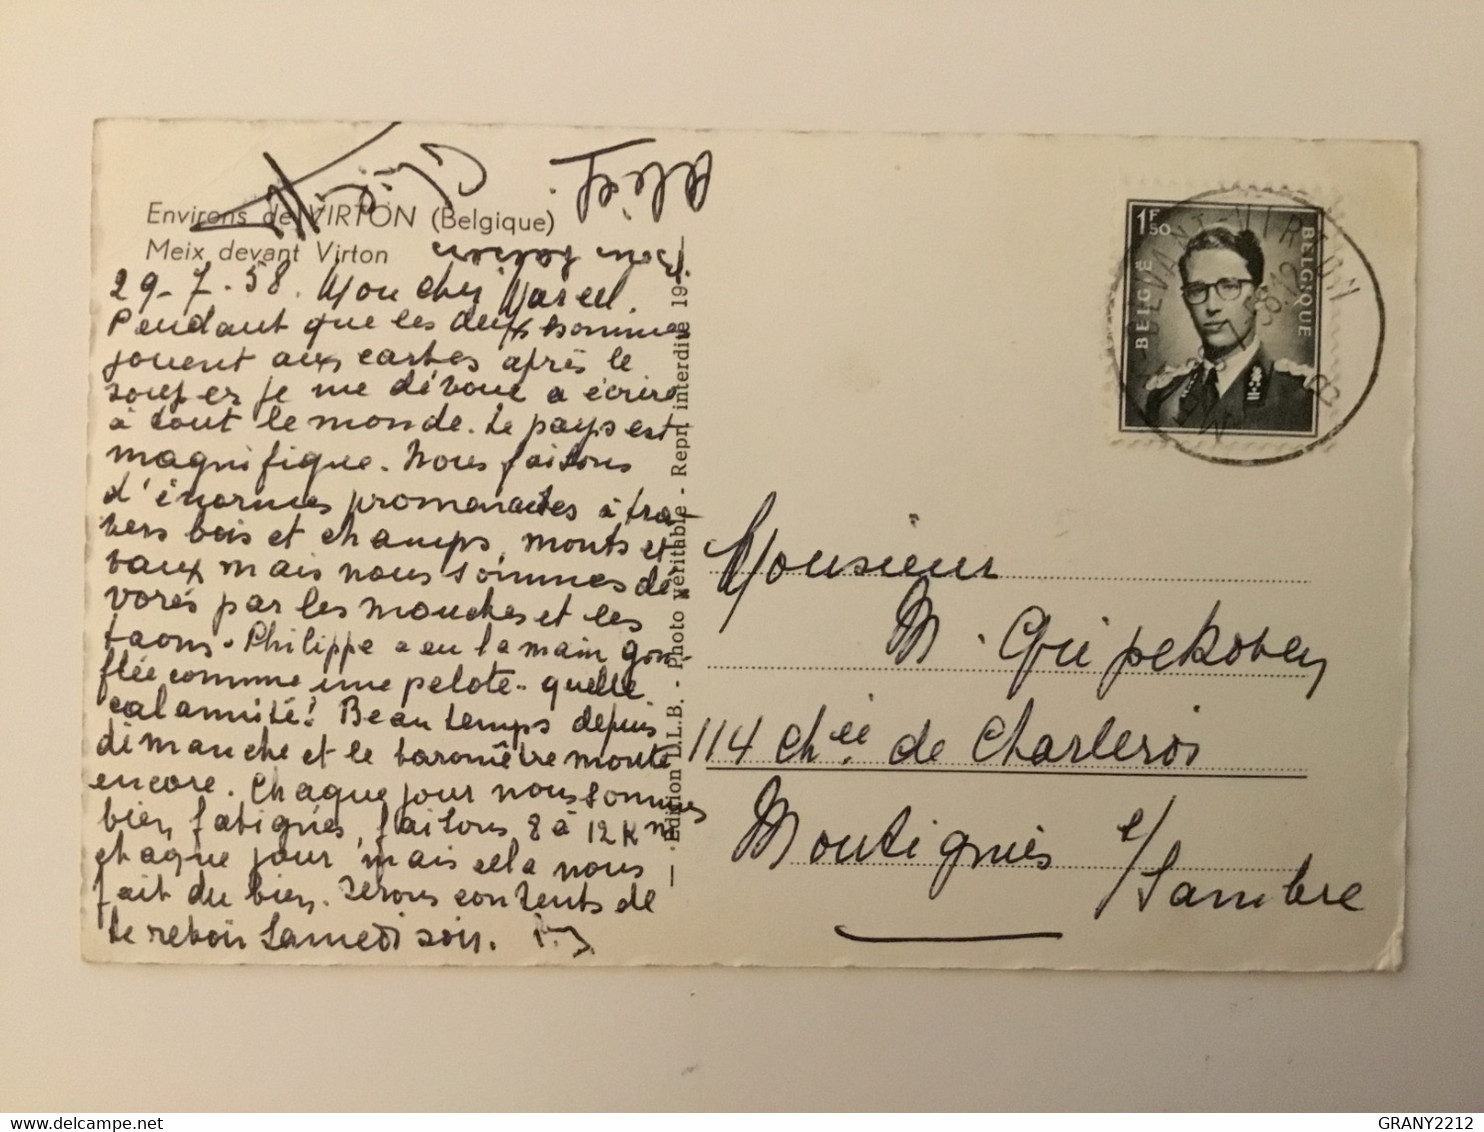 Environs de VIRTON (Belgique)
Meix devant Virton
Bon
29-7-58. Mon cher Marcel.
Pendant que les deux hommes
jouent aux cartes après le
souper je me dévoue a écrire
à tout le monde. Le pays est
magnifique. Nous faisons
d'énormes promenades à tra-
vers bois et champs, monts et
vaux mais nous sommes dé-
vorés par les mouches et les
taons. Philippe a eu la main gon-
flée comme une pelote. quelle
calamité! Beau temps depuis
dimanche et le baromètre monte
encore. Chaque jour nous sommes
bien fatigués, faisons 8 à 12 Km
chaque jour mais cela nous
fait du bien. Serons contents de
te revoir Samedi soir.
Edition D.L.B. - Photo véritable - Repr. interdite 19
1F50
BELGIË
BELGIQUE
DEVANT-VIRTON
Monsieur
M.
114 Chée de Charleroi
Montignies
s/Sambre
GRANY2212